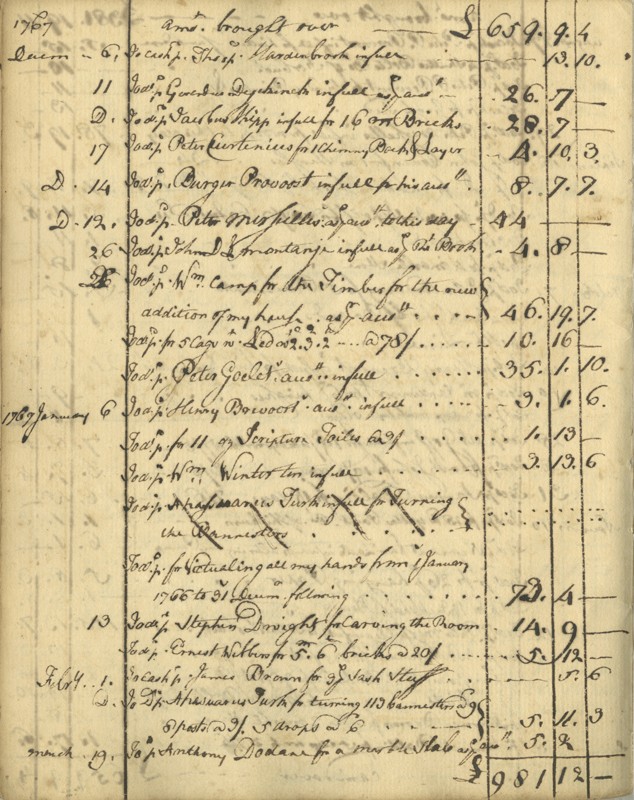 1767 amo. brought over £ 659. 9. 4
Decem 6, To cash p. Theop. Hardenbrook in full 13. 10.
11 To do. p. Goverdus Duyckinck in full as p. acct 26. 7 —
D. To do. p. Jacobus Kipp in full for 16 m Bricks 28. 7 —
17 To do. p. Peter Curtenius for 1 Chimny Back & Layer 4. 10. 3.
D. 14 To do. p. Burger Provoost in full for his acct. 8. 7. 7.
D. 12. To do. p. Peter Mersellis as p. acct to this day 44 —
26 To do. p. John D Lamontanje in full as p. Rt. Book 4. 8 —
26 To do. p. Wm. Camp for the Timber for the new
addition of my house as p. acct 46. 19. 7.
To do. p. for 5 Cagg wt. Led 2. 3. 2 @ 78/ 10. 16 —
To do. p. Peter Goelet acct. in full 35. 1. 10.
1767 January 6 To do. p. Henry Brevoort acct. in full 3. 1. 6.
To do. p. for 11 Scripture Toiles @ 3/ 1. 13 —
To do. p. Wm. Winterton in full 3. 13. 6
To do. p. Ahasuarus Turk in full for Turning
the Bannesters
To do. p. for Victualing all my hands from 1 January
1766 to 31 Decem following 73. 4 —
13 To do. p. Stephen Dwight for Carving the Room 14. 9 —
To do. p. Ernest Wibber for 5. 6 bricks @ 20/ 5. 12 —
Febry. 1. To Cash p. James Brown for Sash Stuff 5. 6
D. To Do. p. Ahasuarus Turk for turning 113 bannesters @ 9
6 posts @ 3/. 5 drops @ 6 5. 11. 3
march 19. To p. Anthony Dodane for a marble Slab as p. acct. 5. 2
£ 981 12 —